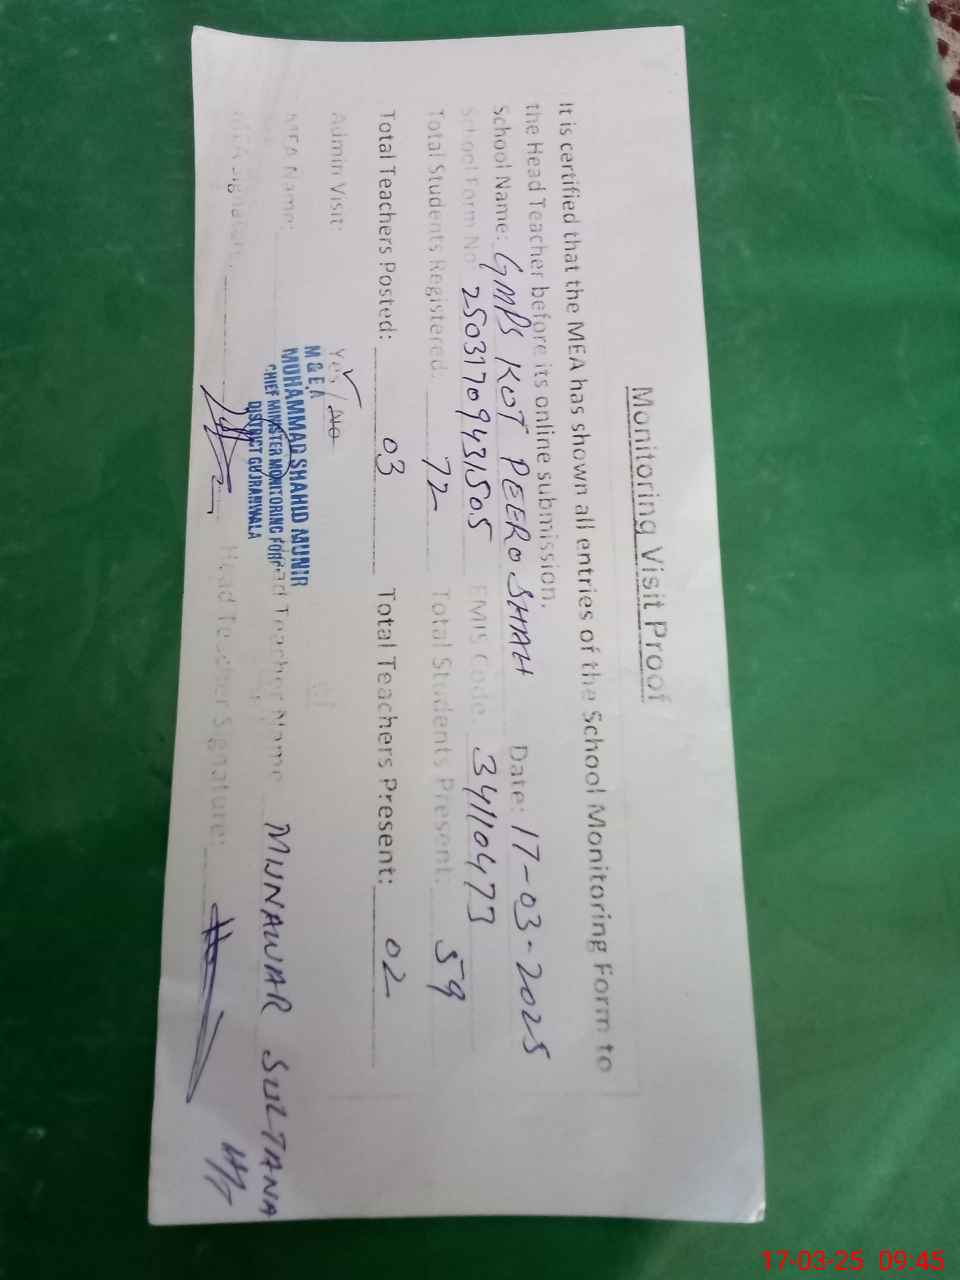 Monitoring Visit Proof
It is certified that the MEA has shown all entries of the School Monitoring Form to
the Head Teacher before its online submission.
School Name: GMPS KOT PEERO SHAH Date: 17-03-2025
School Form No: 25031709431505 EMIS Code: 34110473
Total Students Registered: 72 Total Students Present: 59
Total Teachers Posted: 03 Total Teachers Present: 02
Admin Visit: Yes / No
MEA Name: Head Teacher Name MUNAWAR SULTANA
M & E A
MUHAMMAD SHAHID MUNIR
CHIEF MINISTER MONITORING FORCE
DISTRICT GUJRANWALA
MEA Signature: Head Teacher Signature:
17-03-25 09:45